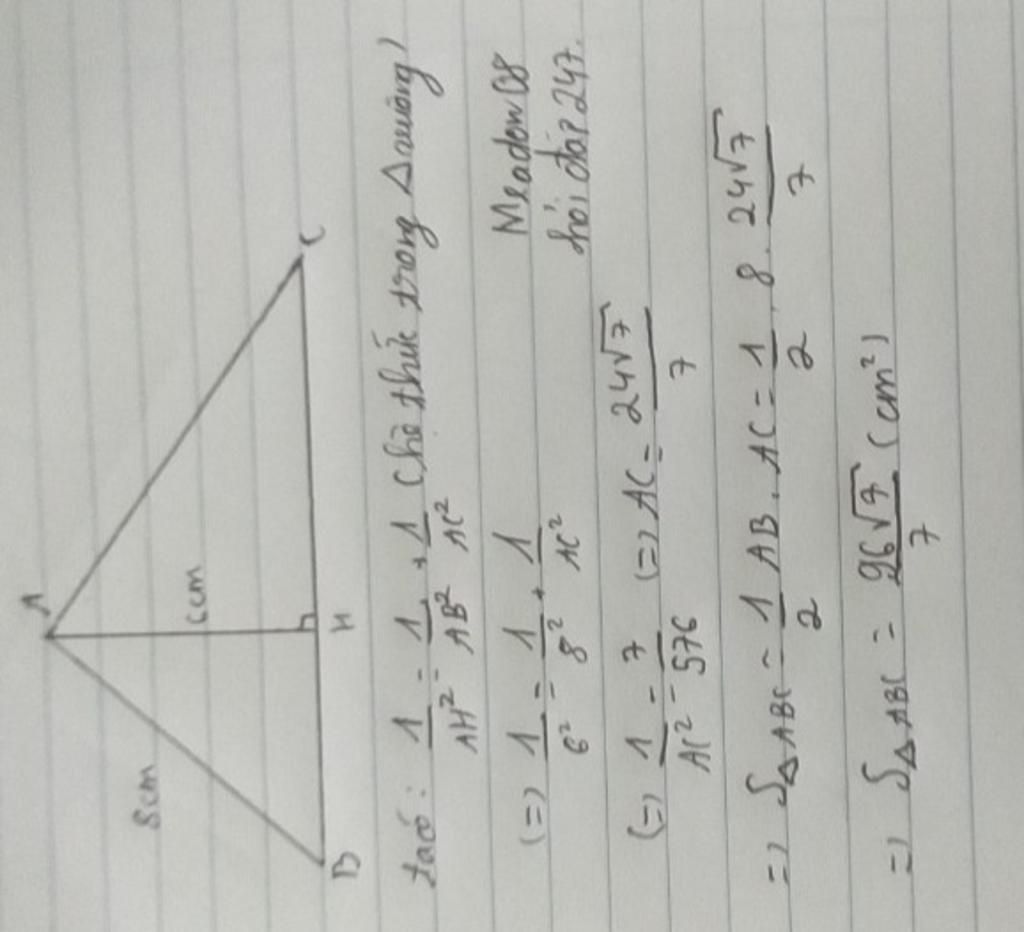 A
8cm
6cm
B
H
C
ta có: 1/AH² = 1/AB² + 1/AC² (hệ thức trong Δ vuông)
(=) 1/6² = 1/8² + 1/AC²
Meadow08
hỏi đáp 247.
(=) 1/AC² = 7/576 (=) AC = 24√7/7
=) SΔABC = 1/2 AB . AC = 1/2 . 8 . 24√7/7
=) SΔABC = 96√7/7 (cm²)